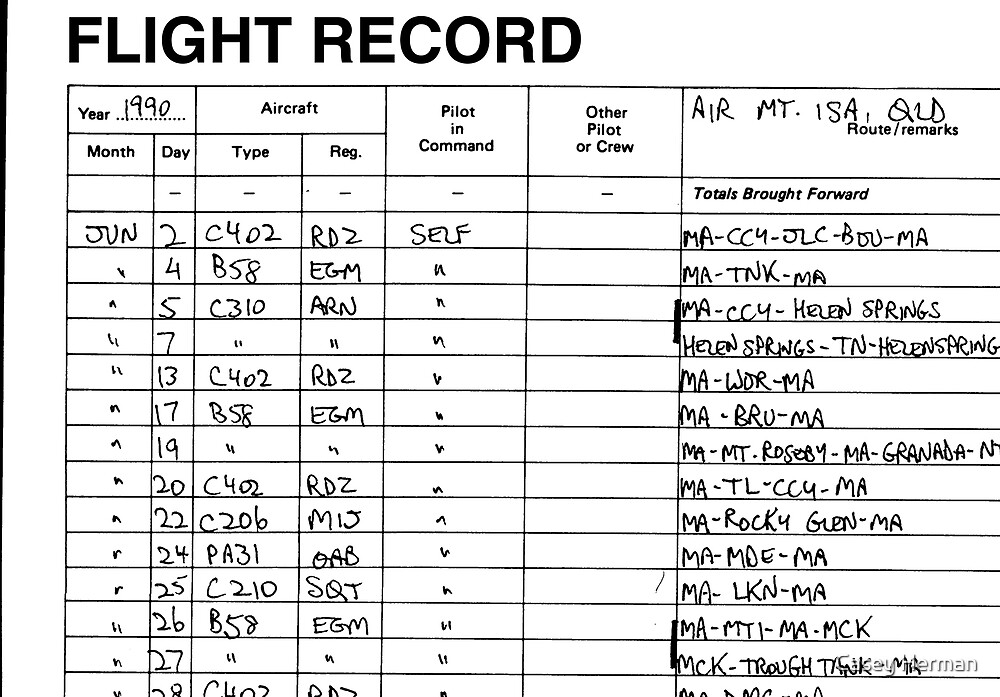 FLIGHT RECORD
Year 1990 Aircraft Pilot in Command Other Pilot or Crew AIR MT. ISA, QLD Route/remarks
Month Day Type Reg.
— — — — — Totals Brought Forward
JUN 2 C402 RDZ SELF MA-CCY-JLC-BOU-MA
" 4 B58 EGM " MA-TNK-MA
" 5 C310 ARN " MA-CCY-HELEN SPRINGS
" 7 " " " HELEN SPRINGS-TN-HELENSPRING
" 13 C402 RDZ " MA-WDR-MA
" 17 B58 EGM " MA-BRU-MA
" 19 " " " MA-MT.ROSEBY-MA-GRANADA-NT
" 20 C402 RDZ " MA-TL-CCY-MA
" 22 C206 MIJ " MA-ROCKY GLEN-MA
" 24 PA31 " MA-MDE-MA
" 25 C210 SQT " MA-LKN-MA
" 26 B58 EGM " MA-MTI-MA-MCK
" 27 " " " MCK-TROUGH TANK-MA
" 28 C402 RDZ "
Casey Herman